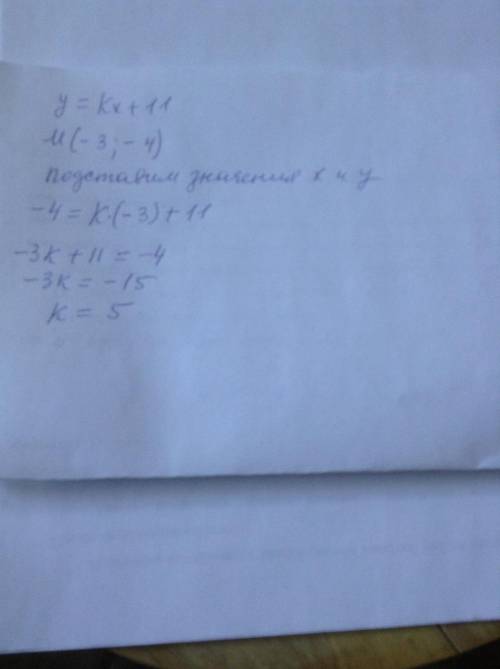 y = Kx + 11
M (-3; -4)
Подставим значения x и y
-4 = K·(-3) + 11
-3K + 11 = -4
-3K = -15
K = 5